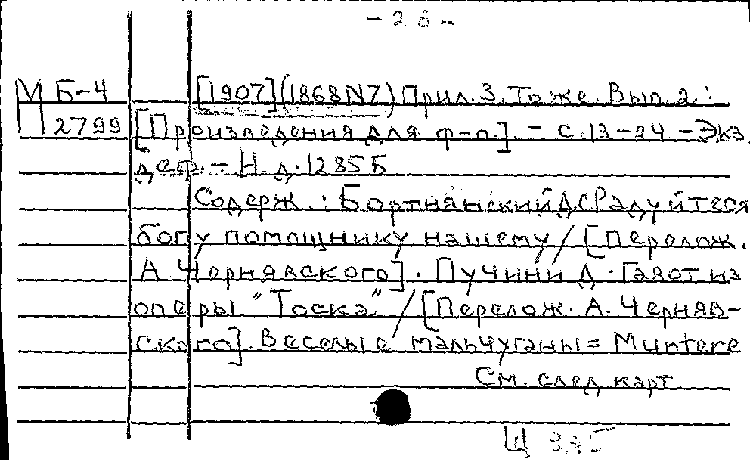 - 2 б -
М Б-4 [1907] (1868 N7) Прил. 3. То же. Вып. 2. :
П 2799 [Произведения для ф-п.]. - С. 13-24 - Экз.
деф. - Н. д. 1285 Б
Содерж.: Бортнянский Д. С. Радуйтеся
богу помощнику нашему / [Перелож.
А. Чернявского]. Пучини Д. Гавот из
оперы "Тоска" / [Перелож. А. Черняв-
ского]. Веселые мальчуганы = Muntere
См. след. карт
Ц